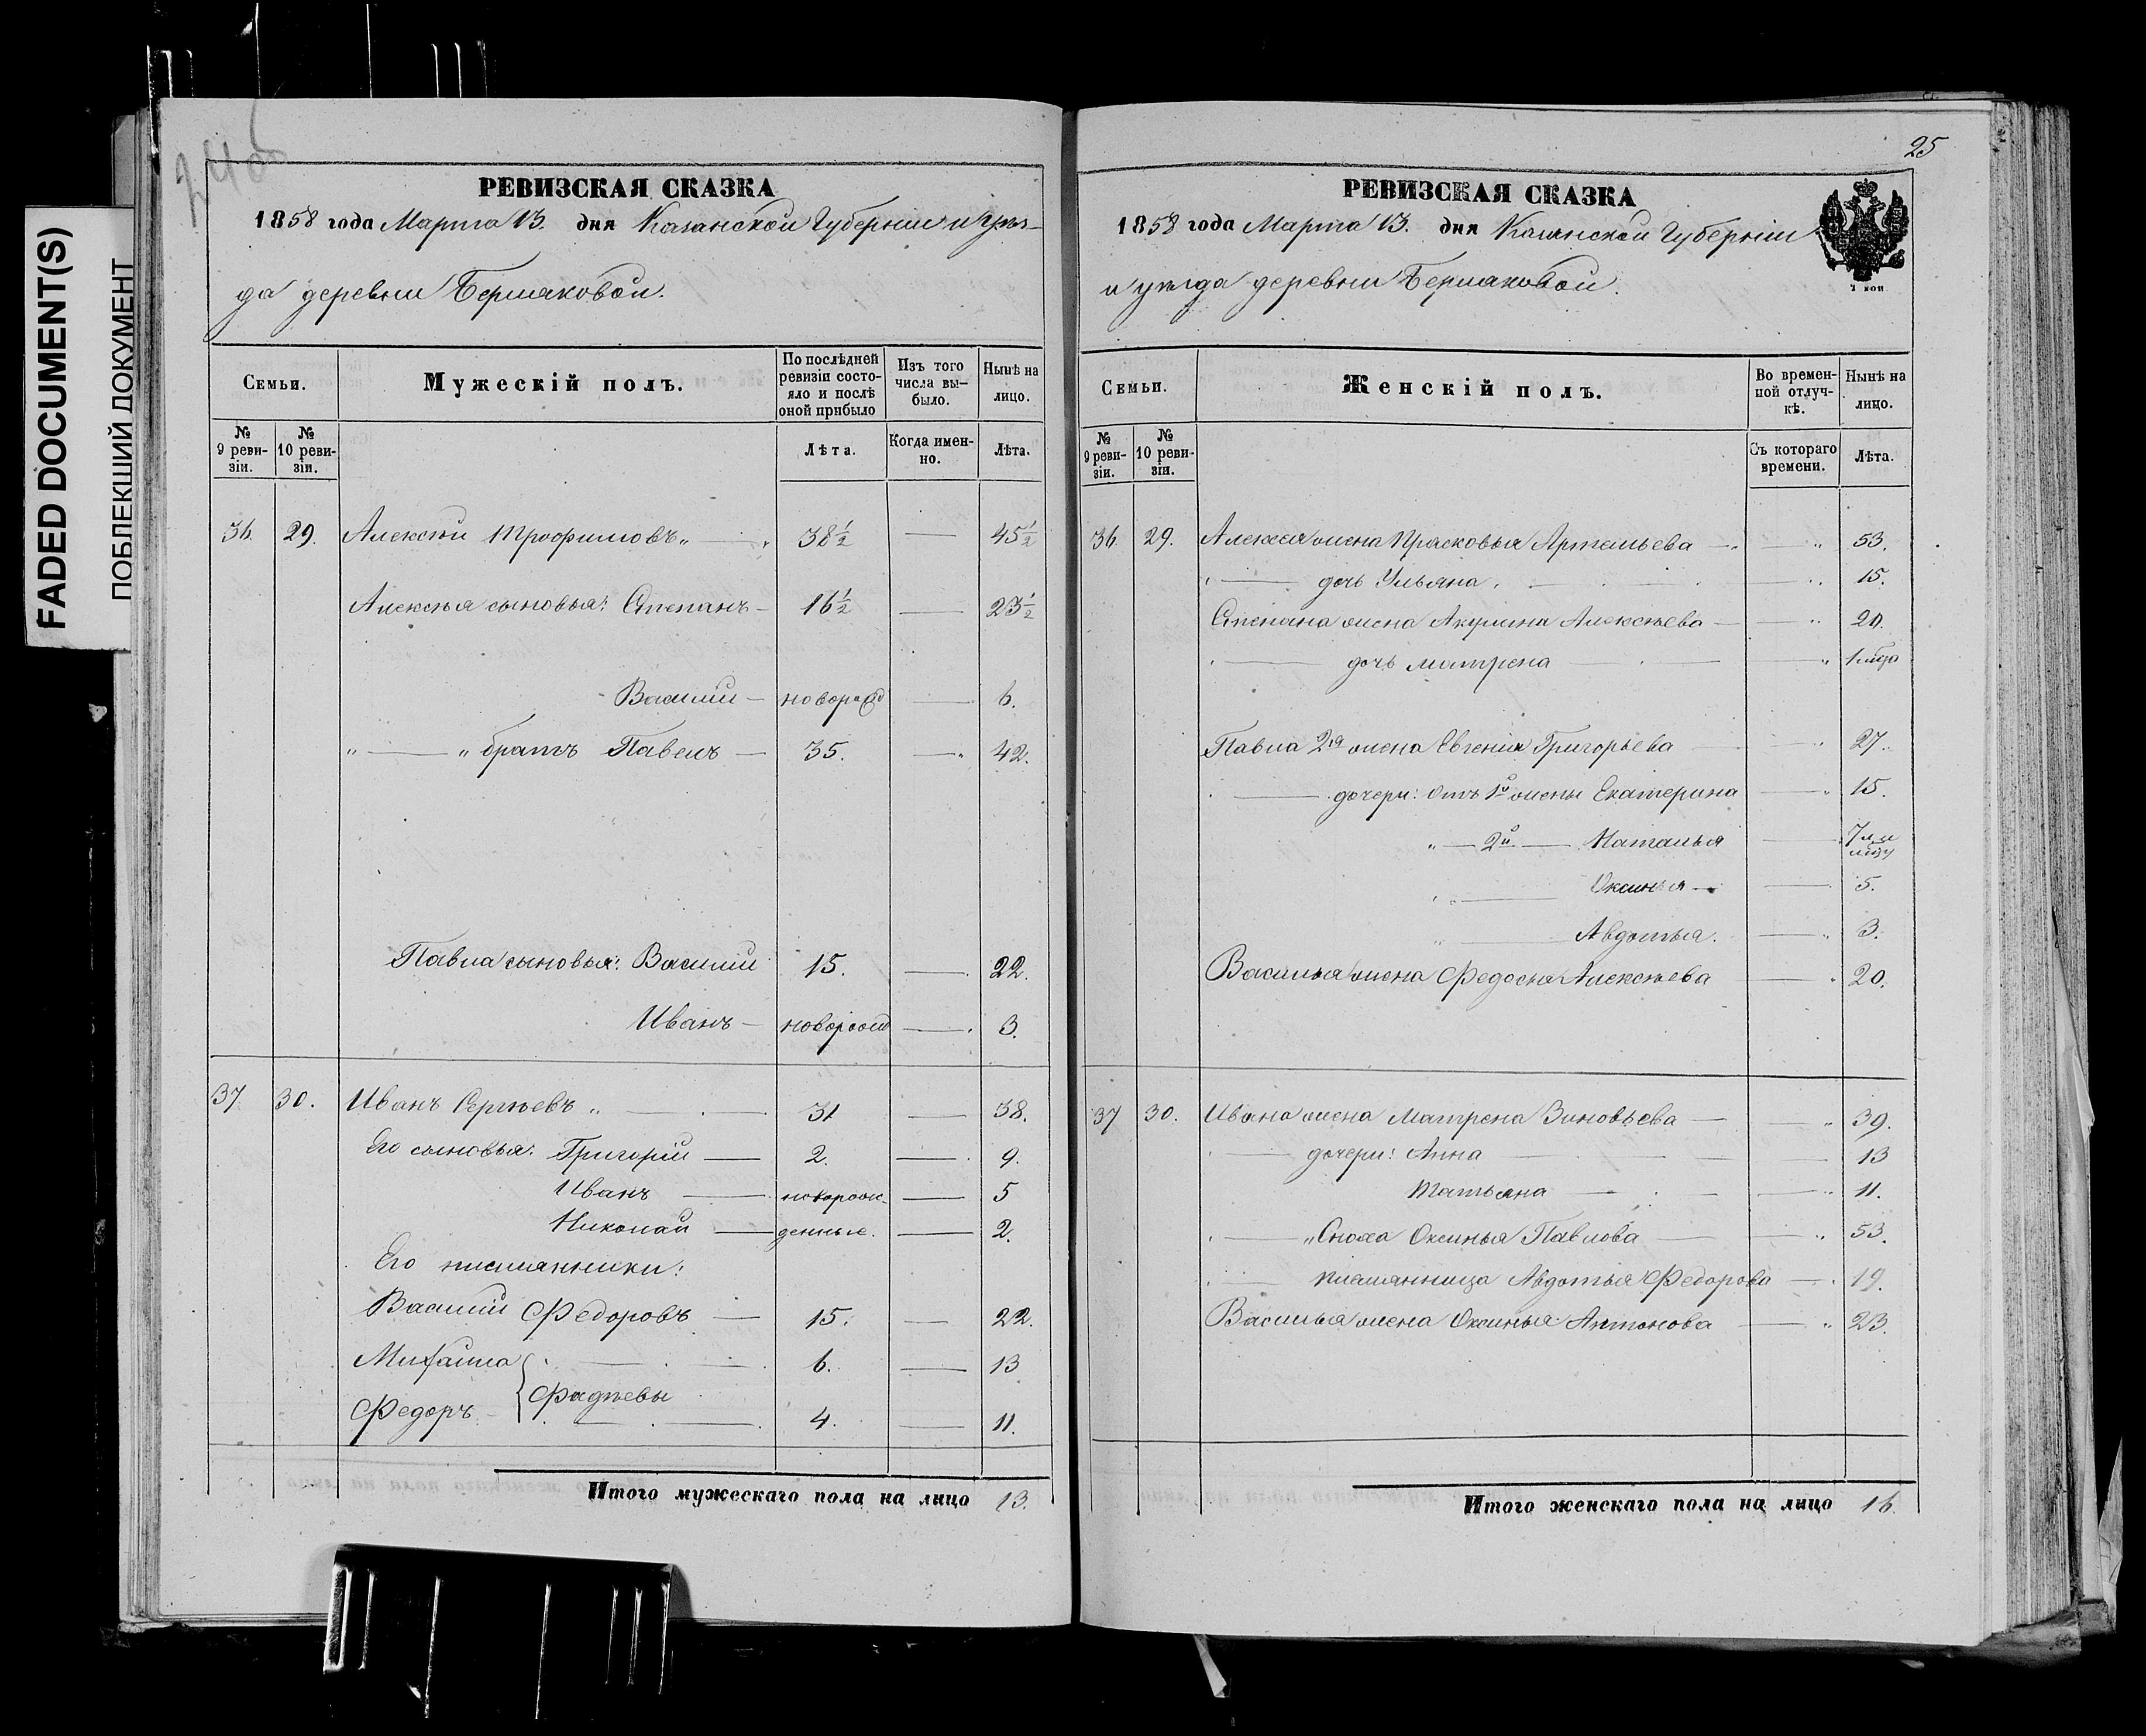 FADED DOCUMENT(S)
ПОБЛЕКШИЙ ДОКУМЕНТ
РЕВИЗСКАЯ СКАЗКА
1858 года Марта 13. дня Казанской Губерніи и уѣз-
да деревни Бермаковой.
Семьи.
Мужескій полъ.
По послѣдней ревизіи состояло и послѣ оной прибыло
Изъ того числа вы-было.
Нынѣ на лицо.
№ 9 реви-зіи.
№ 10 реви-зіи.
Лѣта.
Когда имен-но.
Лѣта.
36. 29. Алексѣй Трофимовъ 38½ — 45½
Алексѣя сыновья: Степанъ — 16½ — 23½
Василій — новорожд — 6.
„ — „ братъ Павелъ — 35. — 42.
Павла сыновья: Василій 15. — 22.
Иванъ — новорожд — 3.
37 30. Иванъ Сергѣевъ „ — 31 — 38.
Его сыновья: Григорій — 2. — 9.
Иванъ — новорож- — 5
Николай — денные. — 2.
Его племянники:
Василій Федоровъ — 15. — 22.
Михайла — 6. — 13
Фадѣевы
Федоръ — 4. — 11.
Итого мужескаго пола на лицо 13.
25
РЕВИЗСКАЯ СКАЗКА
1858 года Марта 13. дня Казанской Губерніи
и уѣзда деревни Бермаковой.
Семьи.
Женскій полъ.
Во времен-ной отлуч-кѣ.
Нынѣ на лицо.
№ 9 реви-зіи.
№ 10 реви-зіи.
Съ котораго времени.
Лѣта.
36. 29. Алексея жена Прасковья Артемьева — 53.
„ — дочь Ульяна. — 15.
Степана жена Акулина Алексѣева — 20.
„ — дочь Матрена — „
Павла 2я жена Евгенія Григорьева — 27.
— дочери: отъ 1й жены Екатерина — 15.
„ — 2й — Наталья — 7
Оксинья — 5.
Авдотья. — 3.
Василья жена Федосья Алексѣева — 20.
37 30. Ивана жена Матрена Зиновьева — 39.
„ — дочери: Анна — 13
Татьяна — 11.
„ — „ Сноха Оксинья Павлова — 53.
„ — племянница Авдотья Федорова — 19.
Василья жена Оксинья Антонова — 23.
Итого женскаго пола на лицо 16.